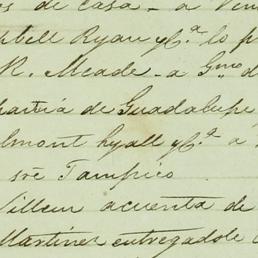 os de casa - a Ven
pbell Ryan y Cª. lo p
R. Meade - a Gmo d
partia de Guadalupe
lmont Hyall y Cª. a
sre Tampico
Villeur acuenta de
Martinez entregadole